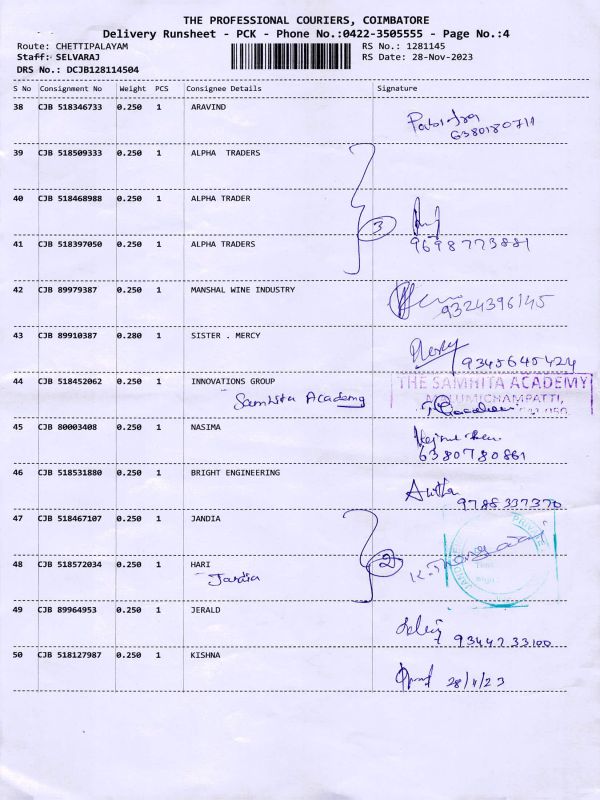 THE PROFESSIONAL COURIERS, COIMBATORE
Delivery Runsheet - PCK - Phone No.:0422-3505555 - Page No.:4
Route: CHETTIPALAYAM RS No.: 1281145
Staff: SELVARAJ RS Date: 28-Nov-2023
DRS No.: DCJB128114504
S No Consignment No Weight PCS Consignee Details Signature
38 CJB 518346733 0.250 1 ARAVIND
6380180711
39 CJB 518509333 0.250 1 ALPHA TRADERS
40 CJB 518468988 0.250 1 ALPHA TRADER
3
41 CJB 518397050 0.250 1 ALPHA TRADERS
9698773881
42 CJB 89979387 0.250 1 MANSHAL WINE INDUSTRY
9324396145
43 CJB 89910387 0.280 1 SISTER . MERCY
Mercy 9345645424
44 CJB 518452062 0.250 1 INNOVATIONS GROUP THE SAMHITA ACADEMY
Samhita Academy MALUMICHAMPATTI,
45 CJB 80003408 0.250 1 NASIMA
6380780861
46 CJB 518531880 0.250 1 BRIGHT ENGINEERING
9788337370
47 CJB 518467107 0.250 1 JANDIA
2
48 CJB 518572034 0.250 1 HARI
Jandia
49 CJB 89964953 0.250 1 JERALD
9344233100
50 CJB 518127987 0.250 1 KISHNA
28/11/23